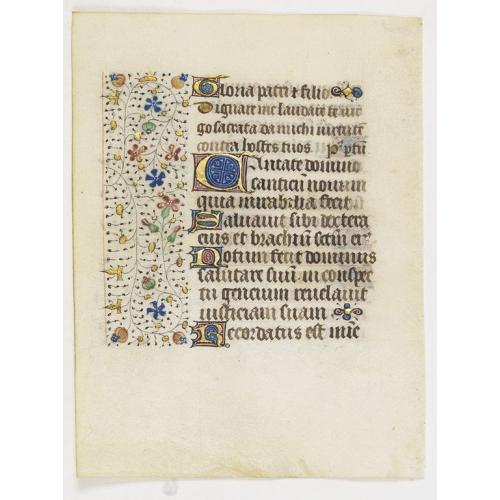 Gloria patri et filio
Dignare me laudare te uir
go sacrata da michi uirtutē
contra hostes tuos. p̄s
Cantate domino
canticū nouum
quia mirabilia fecit
Saluauit sibi dextera
eius et brachiū sctm̄ ei
Notum fecit dominus
salutare suū in conspec
tu gencium reuelauit
iusticiam suam
Recordatus est mie